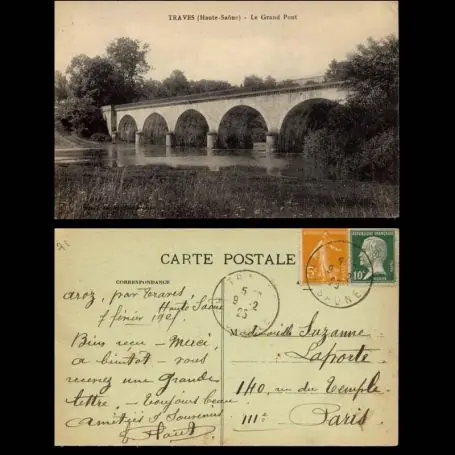 TRAVES (Haute-Saône) - Le Grand Pont
CARTE POSTALE
CORRESPONDANCE
RÉPUBLIQUE FRANÇAISE
5c
10c
TRAVES
5
9-2
25
SAÔNE
aroz, par Traves,
Haute Saône
7 février 192
Bien reçu - Merci,
à bientôt - vous
recevrez une grande
lettre. - Toujours beau.
Amitiés & Souvenirs
Mademoiselle Suzanne
Laporte
140, rue du Temple
IIIe
Paris